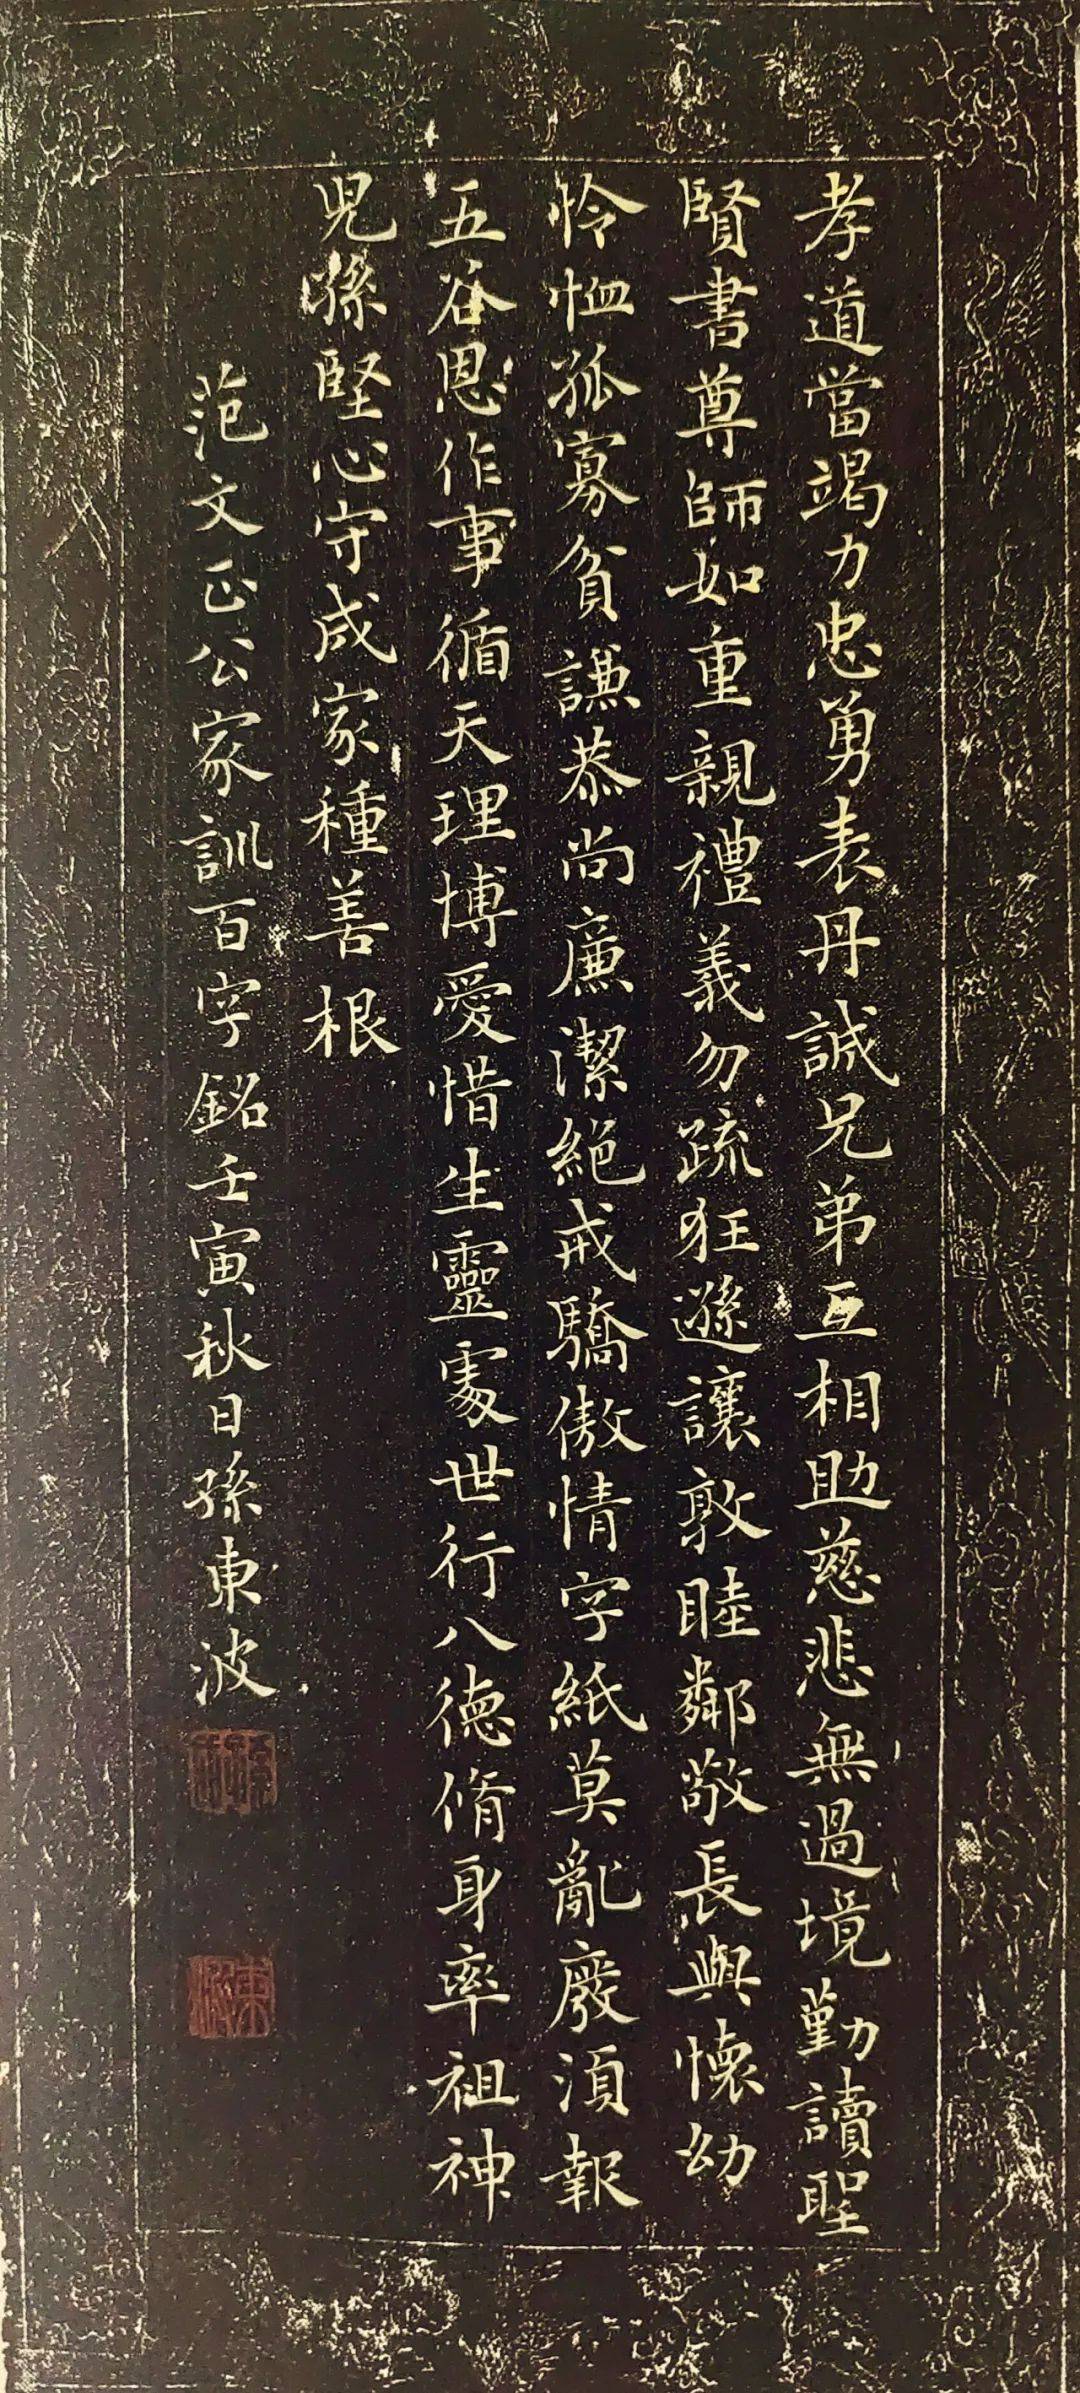 孝道當竭力忠勇表丹誠兄弟互相助慈悲無過境勤讀聖
賢書尊師如重親禮義勿疏狂遜讓敦睦鄰敬長與懷幼
怜恤孤寡貧謙恭尚廉潔絕戒驕傲情字紙莫亂廢須報
五谷恩作事循天理博愛惜生靈處世行八德脩身率祖神
兒孫堅心守成家種善根
范文正公家訓百字銘壬寅秋日孫東波
東波